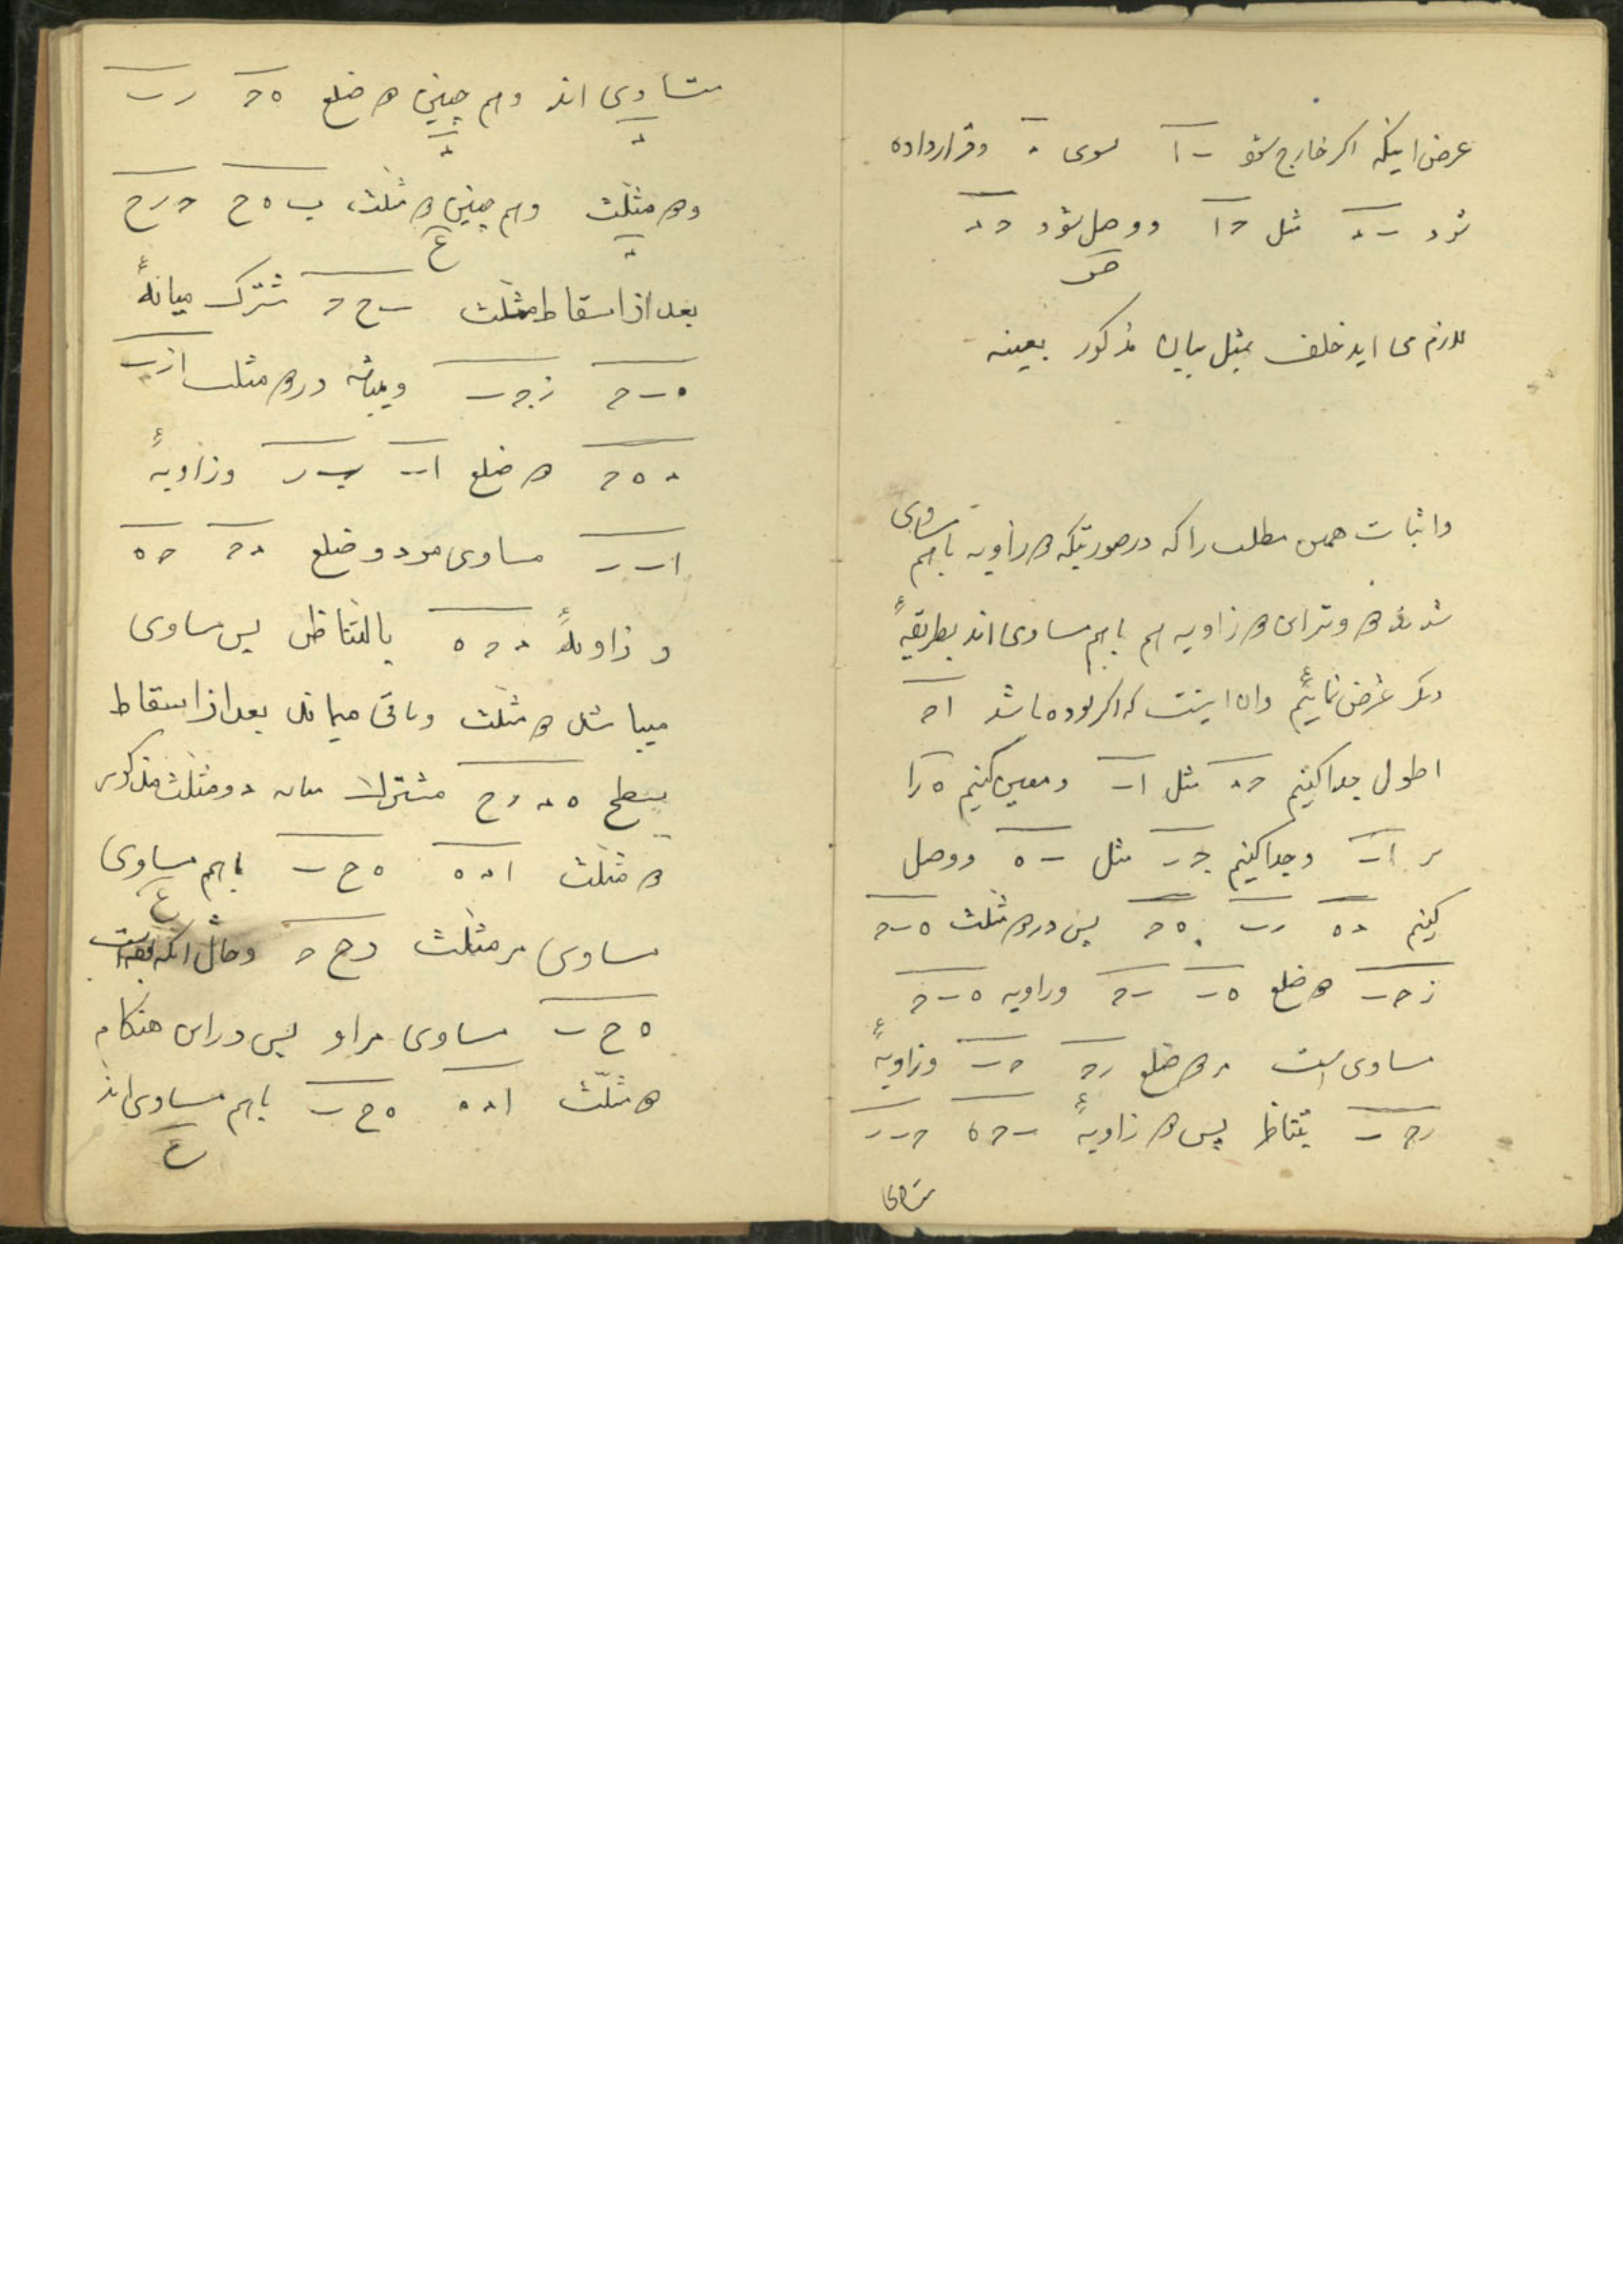 عرض اینکه اکر خارج شود ب ا سوی د و قرار داده
شود ب د مثل ح ا و وصل شود ح د
لازم می اید خلف بمثل بیان مذکور بعینه
و اثبات همین مطلب را که در صورتیکه دو زاویه باهم مساوی
شدند دو وتر ان دو زاویه هم باهم مساوی اند بطریقهٔ
دیکر عرض نمائیم و ان اینست که اکر بوده باشد ا ح
اطول جدا کنیم ح د مثل ا ب و معین کنیم ه را
بر ا ب و جدا کنیم ح ر مثل ب ه و وصل
کنیم د ه ر ب ه ح پس در دو مثلث ه ب ح
ز ح ب دو ضلع ه ب ب ح و زاویه ه ب ح
مساوی است بر دو ضلع ر ح ح ب و زاویهٔ
ر ح ب بتناظر پس دو زاویهٔ ب ح ه ح ب ر
متساوی
متساوی اند و هم چنین دو ضلع ه ح ر ب
و دو مثلث و هم چنین دو مثلث ب ه ح ح ر ح
بعد از اسقاط مثلث ب ح ح مشترک میانهٔ
ه ب ح ز ح ب و میباشد در دو مثلث ا ر ب
د ه ح دو ضلع ا ب ب ر و زاویهٔ
ا ب ر مساوی مر دو ضلع د ح ح ه
و زاویهٔ د ح ه بالتناظر پس مساوی
میباشد دو مثلث و باقی میماند بعد از اسقاط
سطح ه د ر ح مشترک میانه دو مثلث مذکور
دو مثلث ا د ه ه ح ب باهم مساوی
مساوی مر مثلث ر ح ح و حال انکه
ه ح ب مساوی مر او پس در این هنکام
دو مثلث ا د ه ه ح ب باهم مساوی اند